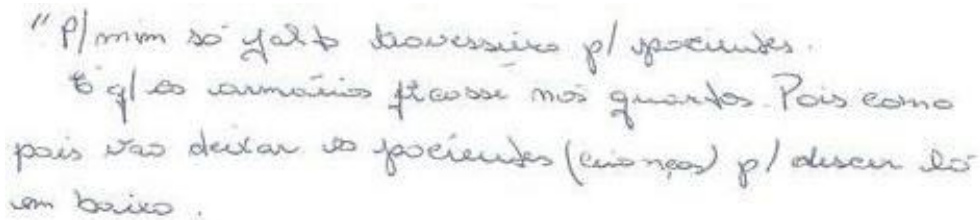 "P/ mim só falta travesseiro p/ pacientes.
E q/ os armários ficasse nos quartos. Pois como
pais vão deixar os pacientes (crianças) p/ descer lá
em baixo.